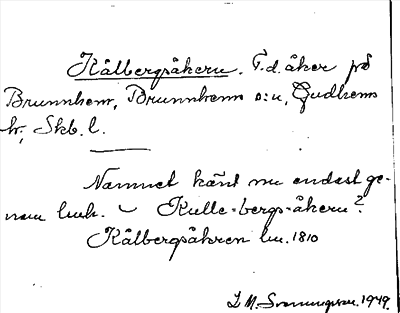 Kålbergsåkern. F.d. åker på
Brunnhem, Brunnhems s:n, Gudhems
h., Skb. l.
Namnet känt nu endast ge-
nom lmh. – Kulle-bergs-åkern?
Kålbergsåkren lm. 1810
I. M. Svenungsson. 1949.